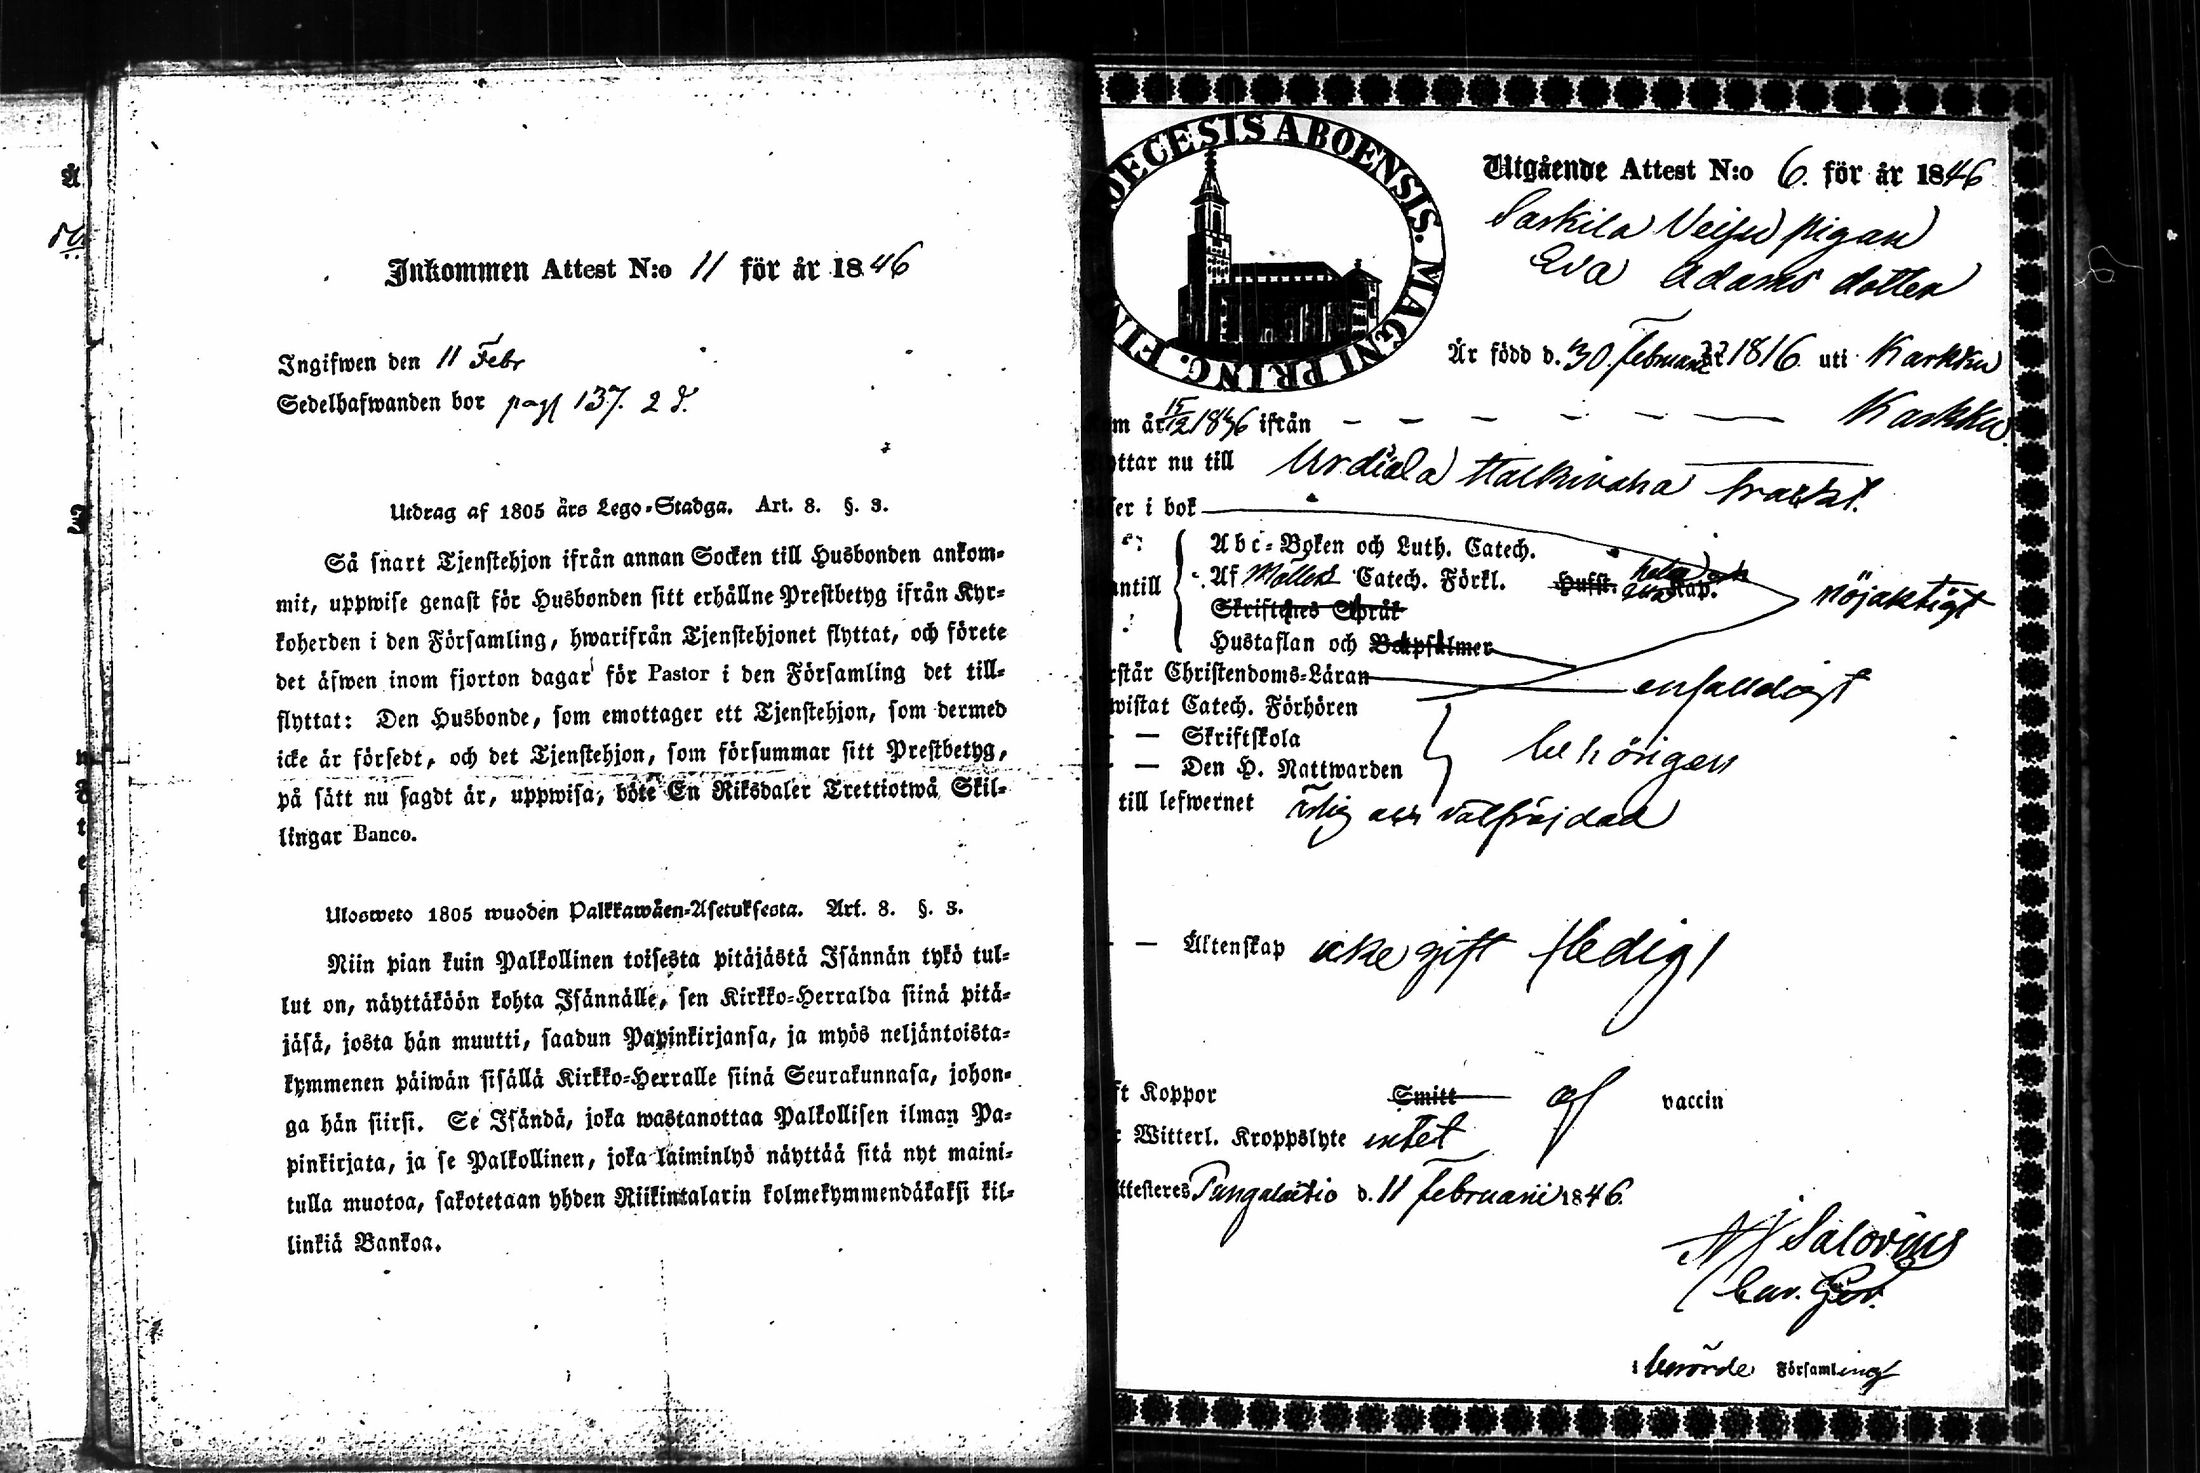 Inkommen Attest N:o 11 för år 1846
Ingifwen den 11 Febr
Sedelhafwanden bor pag 137. 2 d.
Utdrag af 1805 års Lego-Stadga. Art. 8. §. 3.
Så snart Tjenstehjon ifrån annan Socken till Husbonden ankom-
mit, uppwise genast för Husbonden sitt erhållne Prestbetyg ifrån Kyr-
koherden i den Församling, hwarifrån Tjenstehjonet flyttat, och förete
det äfwen inom fjorton dagar för Pastor i den Församling det till-
flyttat: Den Husbonde, som emottager ett Tjenstehjon, som dermed
icke är försedt, och det Tjenstehjon, som försummar sitt Prestbetyg,
på sätt nu sagdt är, uppwisa, böte En Riksdaler Trettiotwå Skil-
lingar Banco.
Ulosweto 1805 wuoden Palkkawäen-Asetuksesta. Art. 8. §. 3.
Niin pian kuin Palkollinen toisesta pitäjästä Isännän tykö tul-
lut on, näyttäköön kohta Isännälle, sen Kirkko-Herralda siinä pitä-
jäsä, josta hän muutti, saadun Papinkirjansa, ja myös neljäntoista-
kymmenen päiwän sisällä Kirkko-Herralle siinä Seurakunnasa, johon-
ga hän siirsi. Se Isändä, joka wastanottaa Palkollisen ilman Pa-
pinkirjata, ja se Palkollinen, joka laiminlyö näyttää sitä nyt maini-
tulla muotoa, sakotetaan yhden Riikintalarin kolmekymmendäkaksi kil-
linkiä Bankoa.
DECESIS ABOENSIS. MAGNI PRINC. FIN
Utgående Attest N:o 6. för år 1846
Sarkila Veisu pigan
Eva Adams dotter
Är född d. 30. Februarii 1816 uti Karkku
m år 15/12 1836 ifrån Karkku
ttar nu till Urdiala Halkivaha
er i bok
ntill
Abc-Boken och Luth. Catech.
Af Möllers Catech. Förkl. Hufst. hela och Kap. nöjaktigt
Skriftenes Språk
Hustaflan och Botpsalmer
rstår Christendoms-Läran enfalldigt
wistat Catech. Förhören
— Skriftskola behörigen
— Den H. Nattwarden
till lefwernet ärlig och välfräjdad
— — Äktenskap icke gift (ledig)
ft Koppor Smitt af vaccin
Witterl. Kroppslyte intet
ttesteres Pungalaitio d. 11 Februarii 1846.
Salovius
i berörde Församling